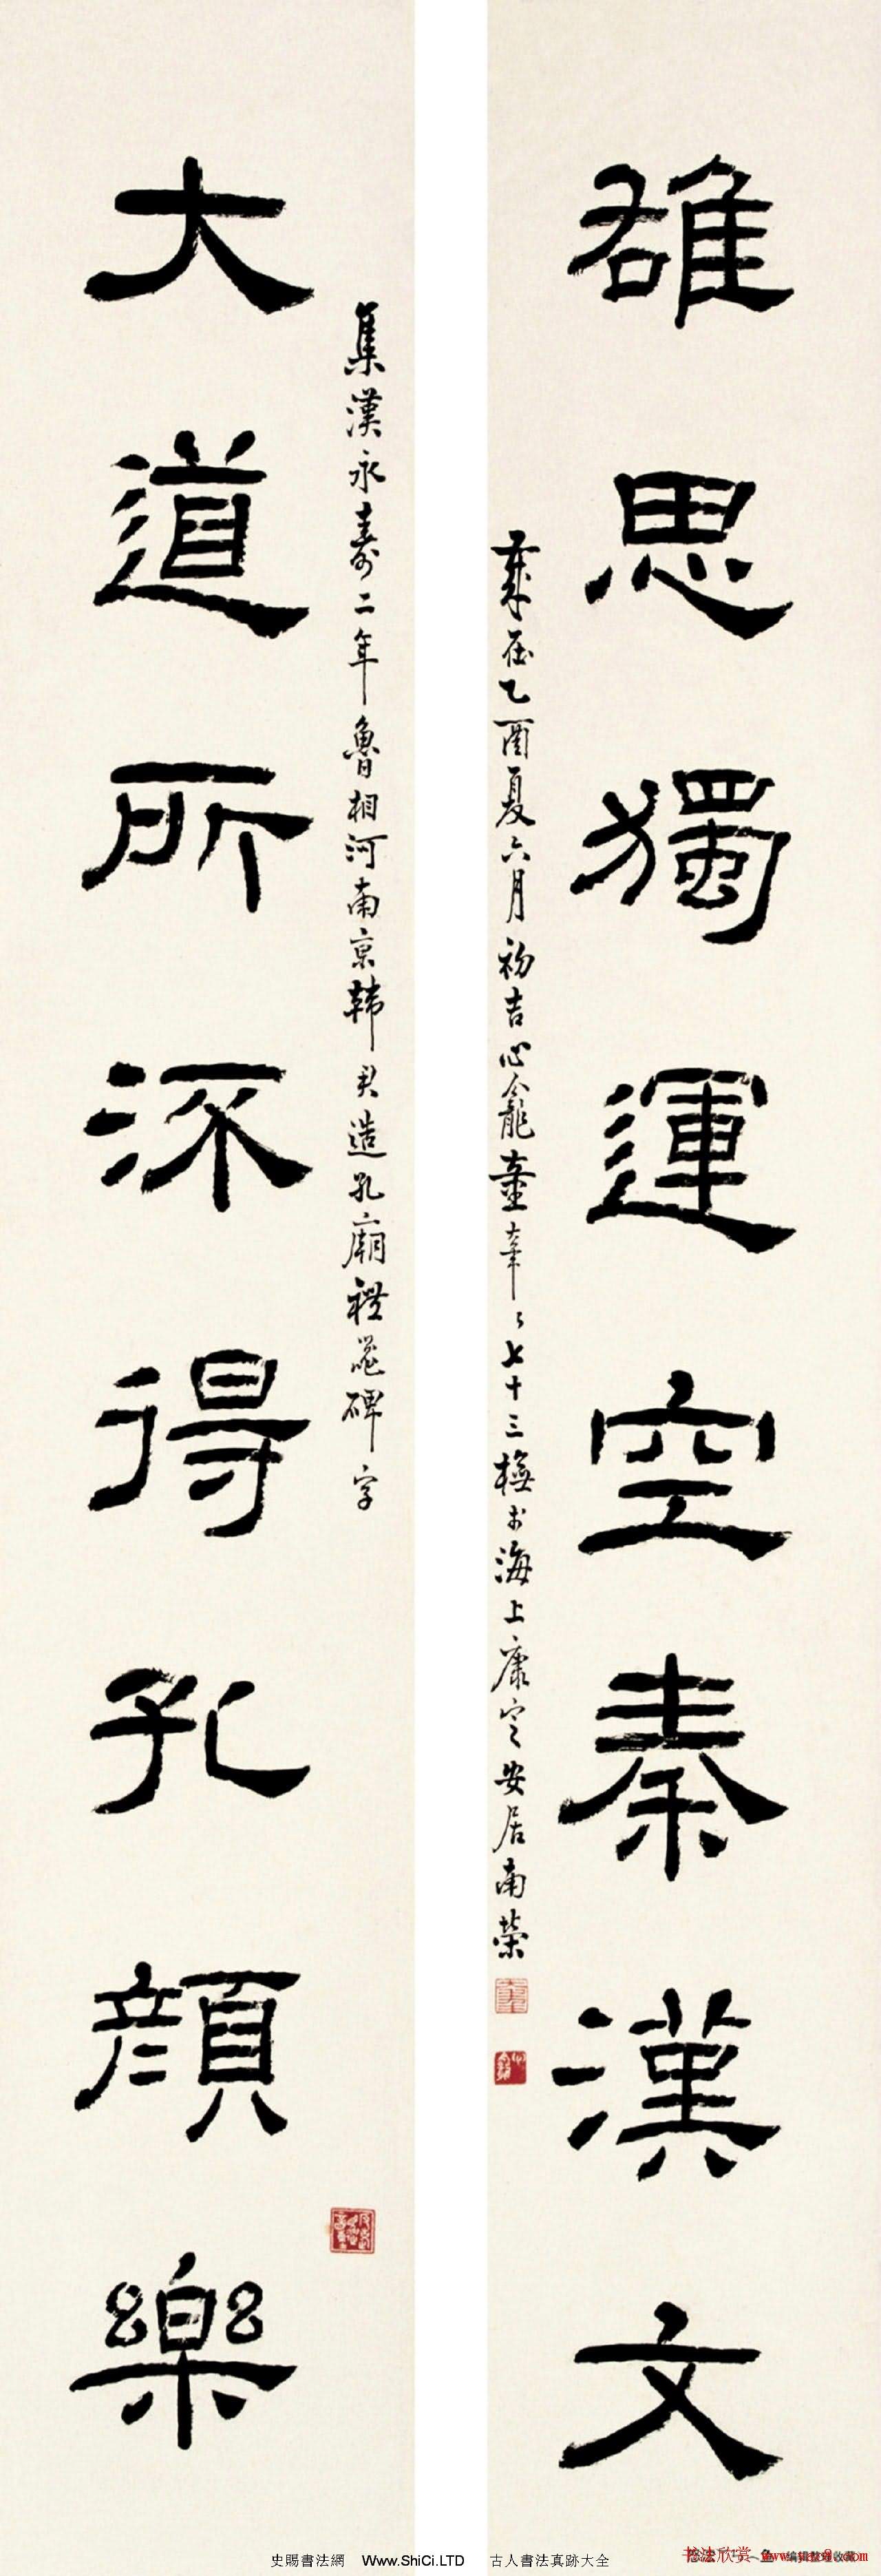 雄思獨運空秦漢文
歲在乙酉夏六月初吉心龕童 年七十三 於海上康寧安居南榮
大道所深得孔顏樂
集漢永壽二年魯相河南京韓君造孔廟禮器碑字
史賜書法網 Www.ShiCi.LTD 古人書法真跡大全
书法欣赏
编辑整理收藏